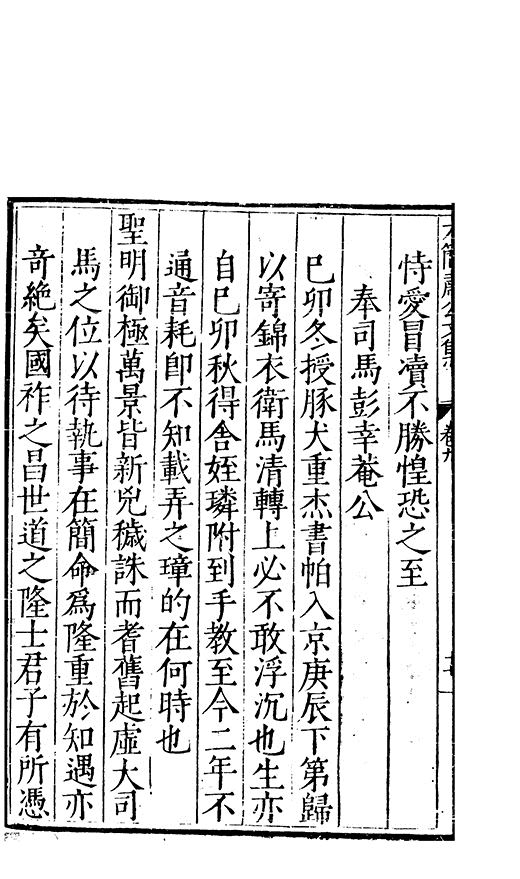 恃愛冒瀆不勝惶恐之至
奉司馬彭幸菴公
巳卯冬授豚犬重杰書帕入京庚辰下第歸
以寄錦衣衛馬清轉上必不敢浮沉也生亦
自巳卯秋得舍姪璘附到手教至今二年不
通音耗卽不知載弄之璋的在何時也
聖明御極萬景皆新兇穢誅而耆舊起虛大司
馬之位以待執事在簡命爲隆重於知遇亦
奇絶矣國祚之昌世道之隆士君子有所憑